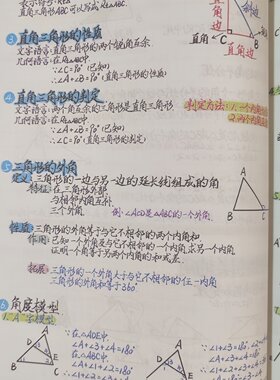 表示符号: Rt△
直角三角形ABC可以写成Rt△ABC
斜边
直角
C
B
直角边
③ 直角三角形的性质
文字语言: 直角三角形的两个锐角互余
几何语言: 在Rt△ABC中
∵∠C=90°(已知)
∴∠A+∠B=90°(直角三角形的性质)
④ 直角三角形的判定
文字语言: 有两个角互余的三角形是直角三角形
几何语言: 在△ABC中
∵∠A+∠B=90°(已知)
∴∠C=90°(直角三角形的判定)
判定方法: 1.一个内
2.两个内角互
⑤ 三角形的外角
定义: 三角形的一边与另一边的延长线组成的角
特征: 在三角形外部
与相邻内角互补
三个外角
例: ∠ACD是△ABC的一个外角
A
B
C
性质: 三角形的外角等于与它不相邻的两个内角和
作用: 已知一个外角及与它不相邻的一个内角, 求另一个内角
证明一个角等于另两个角的和或差.
拓展: 三角形的一个外角大于与它不相邻的任一内角
三角形的外角和等于360°
⑥ 角度模型
1. A字模型
A
D
E
B
C
∵在△ADE中
∠A+∠1+∠2=180°
∵在△ABC中
∠A+∠3+∠4=180°